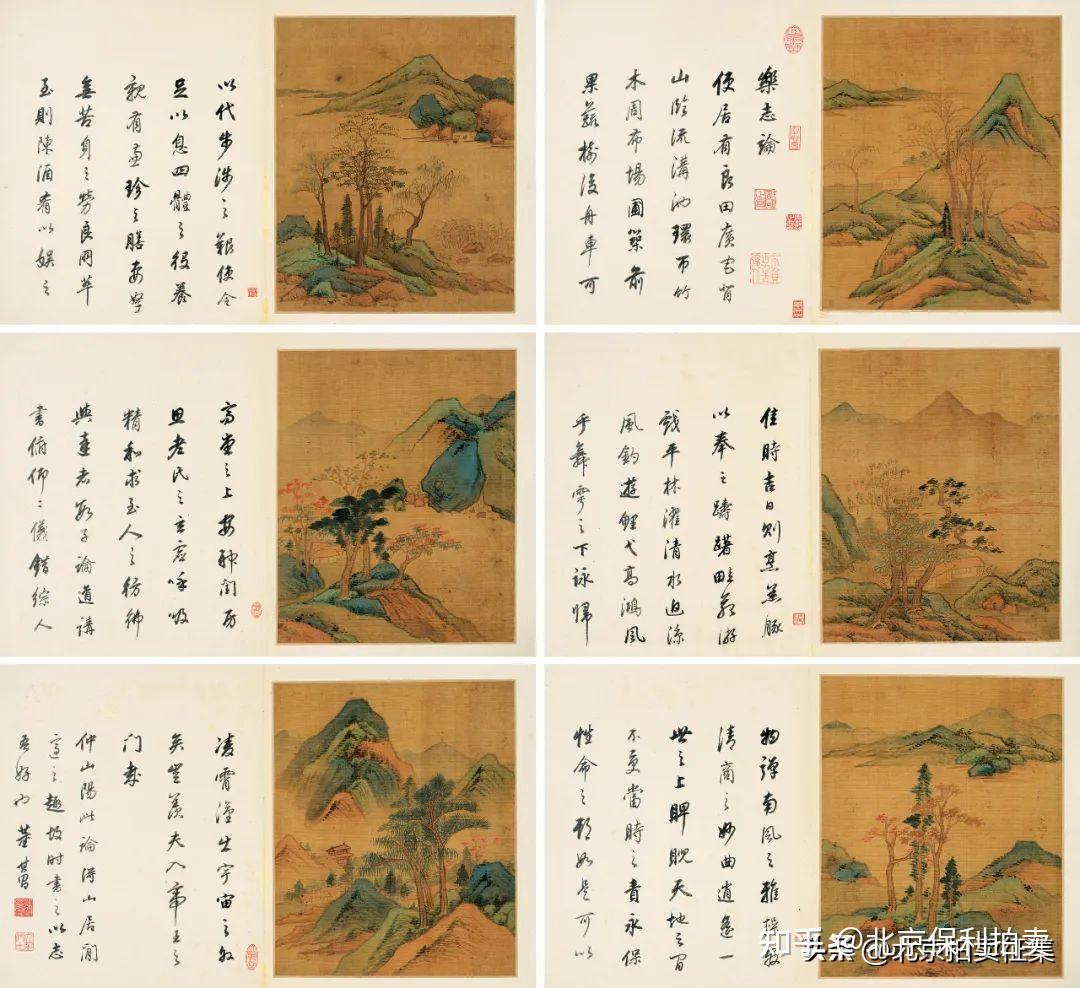 樂志論
使居有良田廣宅背
山臨流溝池環帀竹
木周布場圃築前
果蔬樹後舟車可
以代步涉之艱使令
足以息四體之役養
親有兼珍之膳妻孥
無苦身之勞良朋萃
至則陳酒肴以娛之
佳時吉日則烹羔豚
以奉之躊躇畦苑游
戲平林濯清水追涼
風釣遊鯉弋高鴻風
乎舞雩之下詠歸
高堂之上安神閨房
思老氏之玄虛呼吸
精和求至人之彷彿
與達者數子論道講
書俯仰二儀錯綜人
物彈南風之雅操發
清商之妙曲逍遙一
世之上睥睨天地之間
不受當時之責永保
性命之期如是可以
凌霄漢出宇宙之外
矣豈羨夫入帝王之
門哉
仲山陽此論得山居閒
適之趣故時書之以志
吾好也 董其昌
知乎 @北京保利拍卖
头条 @北京拍卖征集